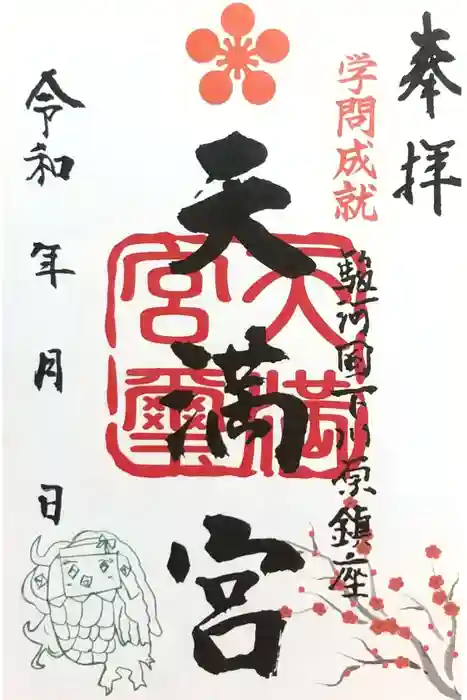 奉拝
学問成就
駿河国下川原鎮座
天満宮
天満宮璽
令和 年 月 日